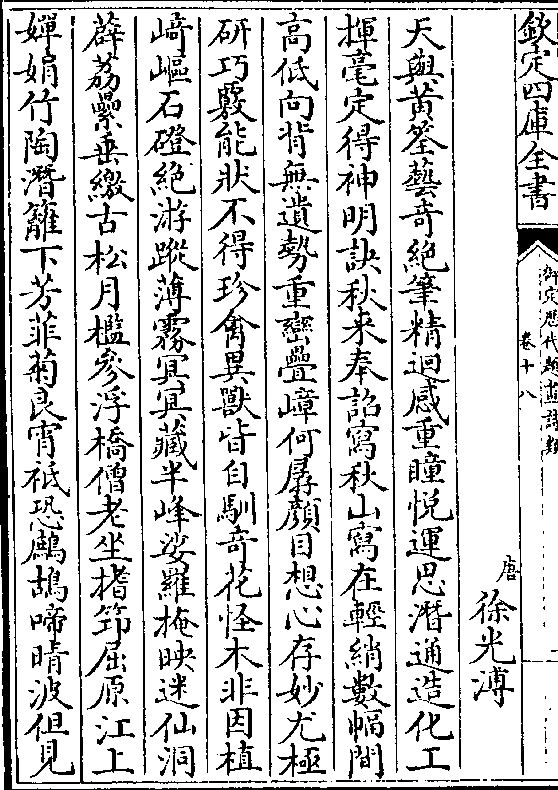 欽定四庫全書
御定歷代題畫詩類
卷十八
唐 徐光溥
天與黃筌藝奇絕筆精迴感重瞳悅運思潛通造化工
揮毫定得神明訣秋來奉詔寫秋山寫在輕綃數幅間
高低向背無遺勢重巒疊嶂何孱顏目想心存妙尤極
研巧覈能狀不得珍禽異獸皆自馴奇花怪木非因植
崎嶇石磴絕游蹤薄霧冥冥藏半峰娑羅掩映迷仙洞
薜荔纍垂繳古松月檻參浮橋僧老坐揩筇屈原江上
嬋娟竹陶潛籬下芳菲菊良宵祗恐鷓鴣啼晴波但見